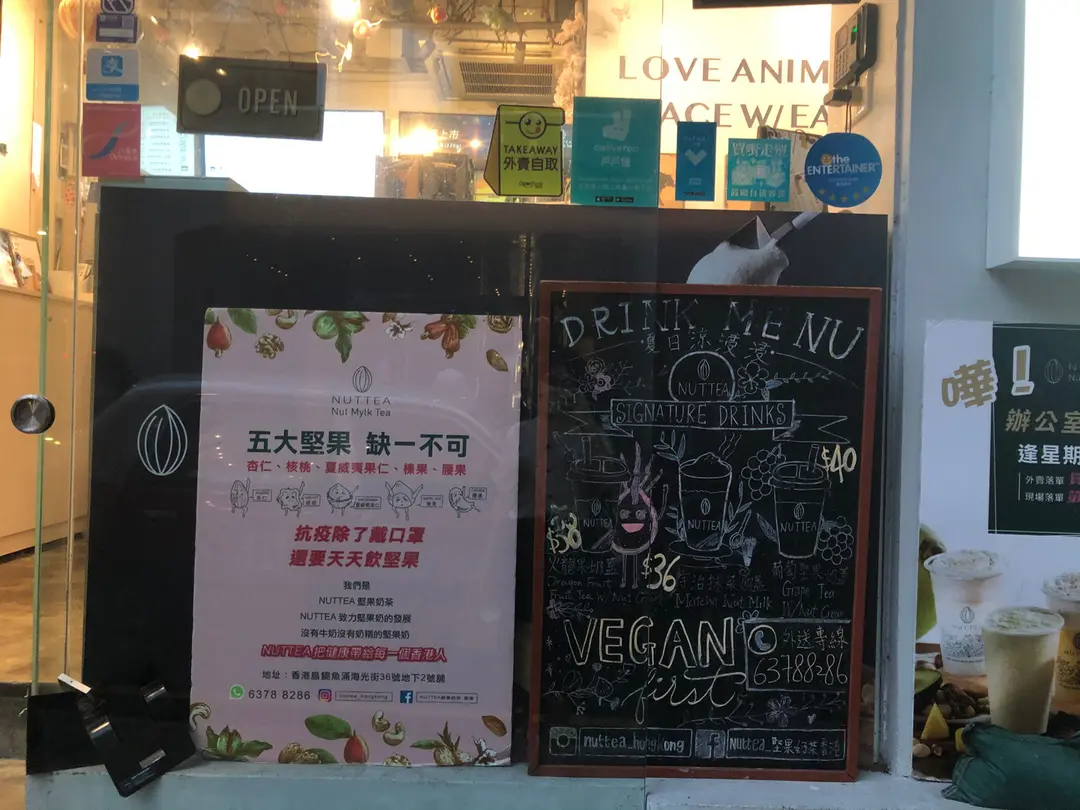 OPEN
LOVE ANIM
ACE W/EA
TAKEAWAY
外賣自取
deliveroo
戶戶送
the
ENTERTAINER
NUTTEA
Nut Mylk Tea
五大堅果 缺一不可
杏仁、核桃、夏威夷果仁、榛果、腰果
抗疫除了戴口罩
還要天天飲堅果
我們是
NUTTEA 堅果奶茶
NUTTEA 致力堅果奶的發展
沒有牛奶沒有奶精的堅果奶
NUTTEA 把健康帶給每一個香港人
地址：香港島鰂魚涌海光街36號地下2號舖
6378 8286
nuttea_hongkong
DRINK MENU
夏日涼浸浸
NUTTEA
SIGNATURE DRINKS
$40
NUTTEA
NUTTEA
NUTTEA
$38
$36
火龍果奶蓋
Dragon Fruit
Fruit Tea W/ Nut
Matcha Nut Milk
葡萄堅果奶蓋
Grape Tea
W/Nut
VEGAN
first
外送專線
63788286
nuttea_hongkong
Nuttea_堅果奶茶香港
嘩！
辦公室
逢星期
外賣落單
現場落單